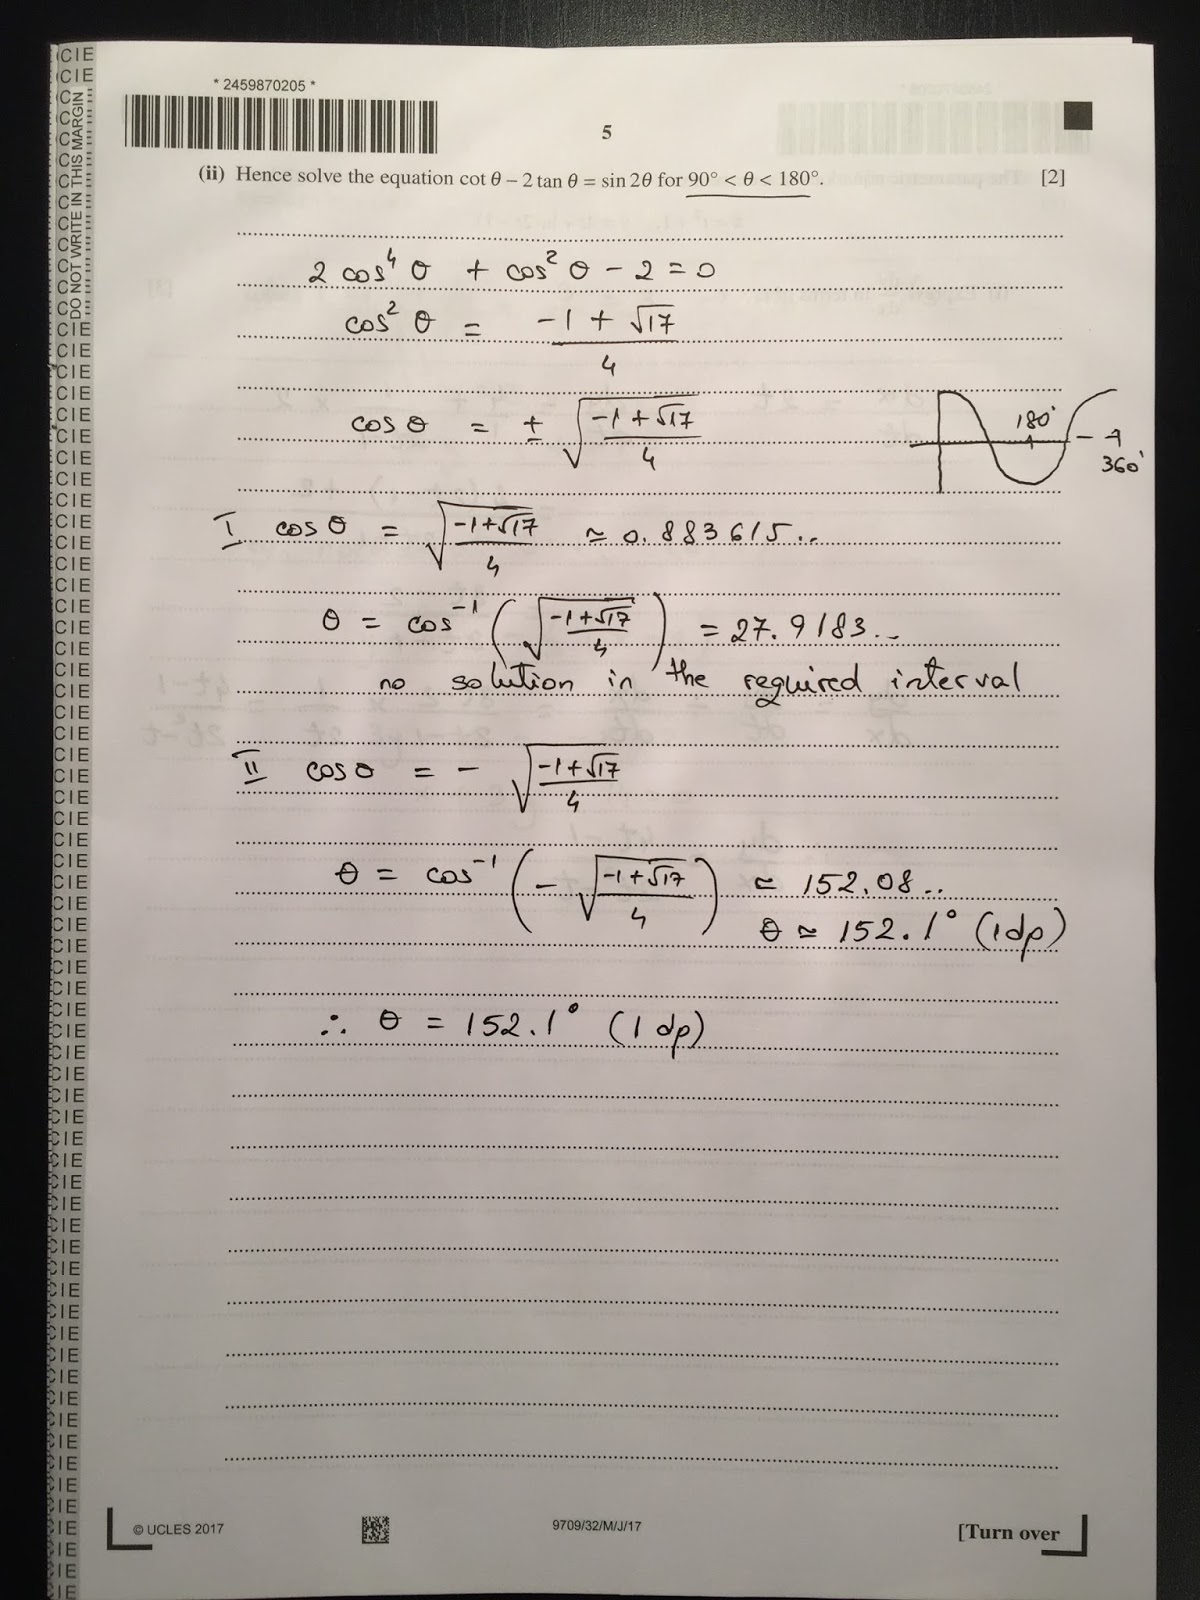 * 2459870205 *
5
DO NOT WRITE IN THIS MARGIN
(ii) Hence solve the equation cot θ – 2 tan θ = sin 2θ for 90° < θ < 180°. [2]
2 cos⁴ θ + cos² θ - 2 = 0
cos² θ = (-1 + √17)/4
cos θ = ± √((-1 + √17)/4)
180°
360°
I cos θ = √((-1+√17)/4) ≃ 0.883615..
θ = cos⁻¹ (√((-1+√17)/4)) = 27.9183..
no solution in the required interval
II cos θ = - √((-1+√17)/4)
θ = cos⁻¹ (- √((-1+√17)/4)) ≃ 152.08..
θ ≃ 152.1° (1dp)
∴ θ = 152.1° (1 dp)
© UCLES 2017
9709/32/M/J/17
[Turn over